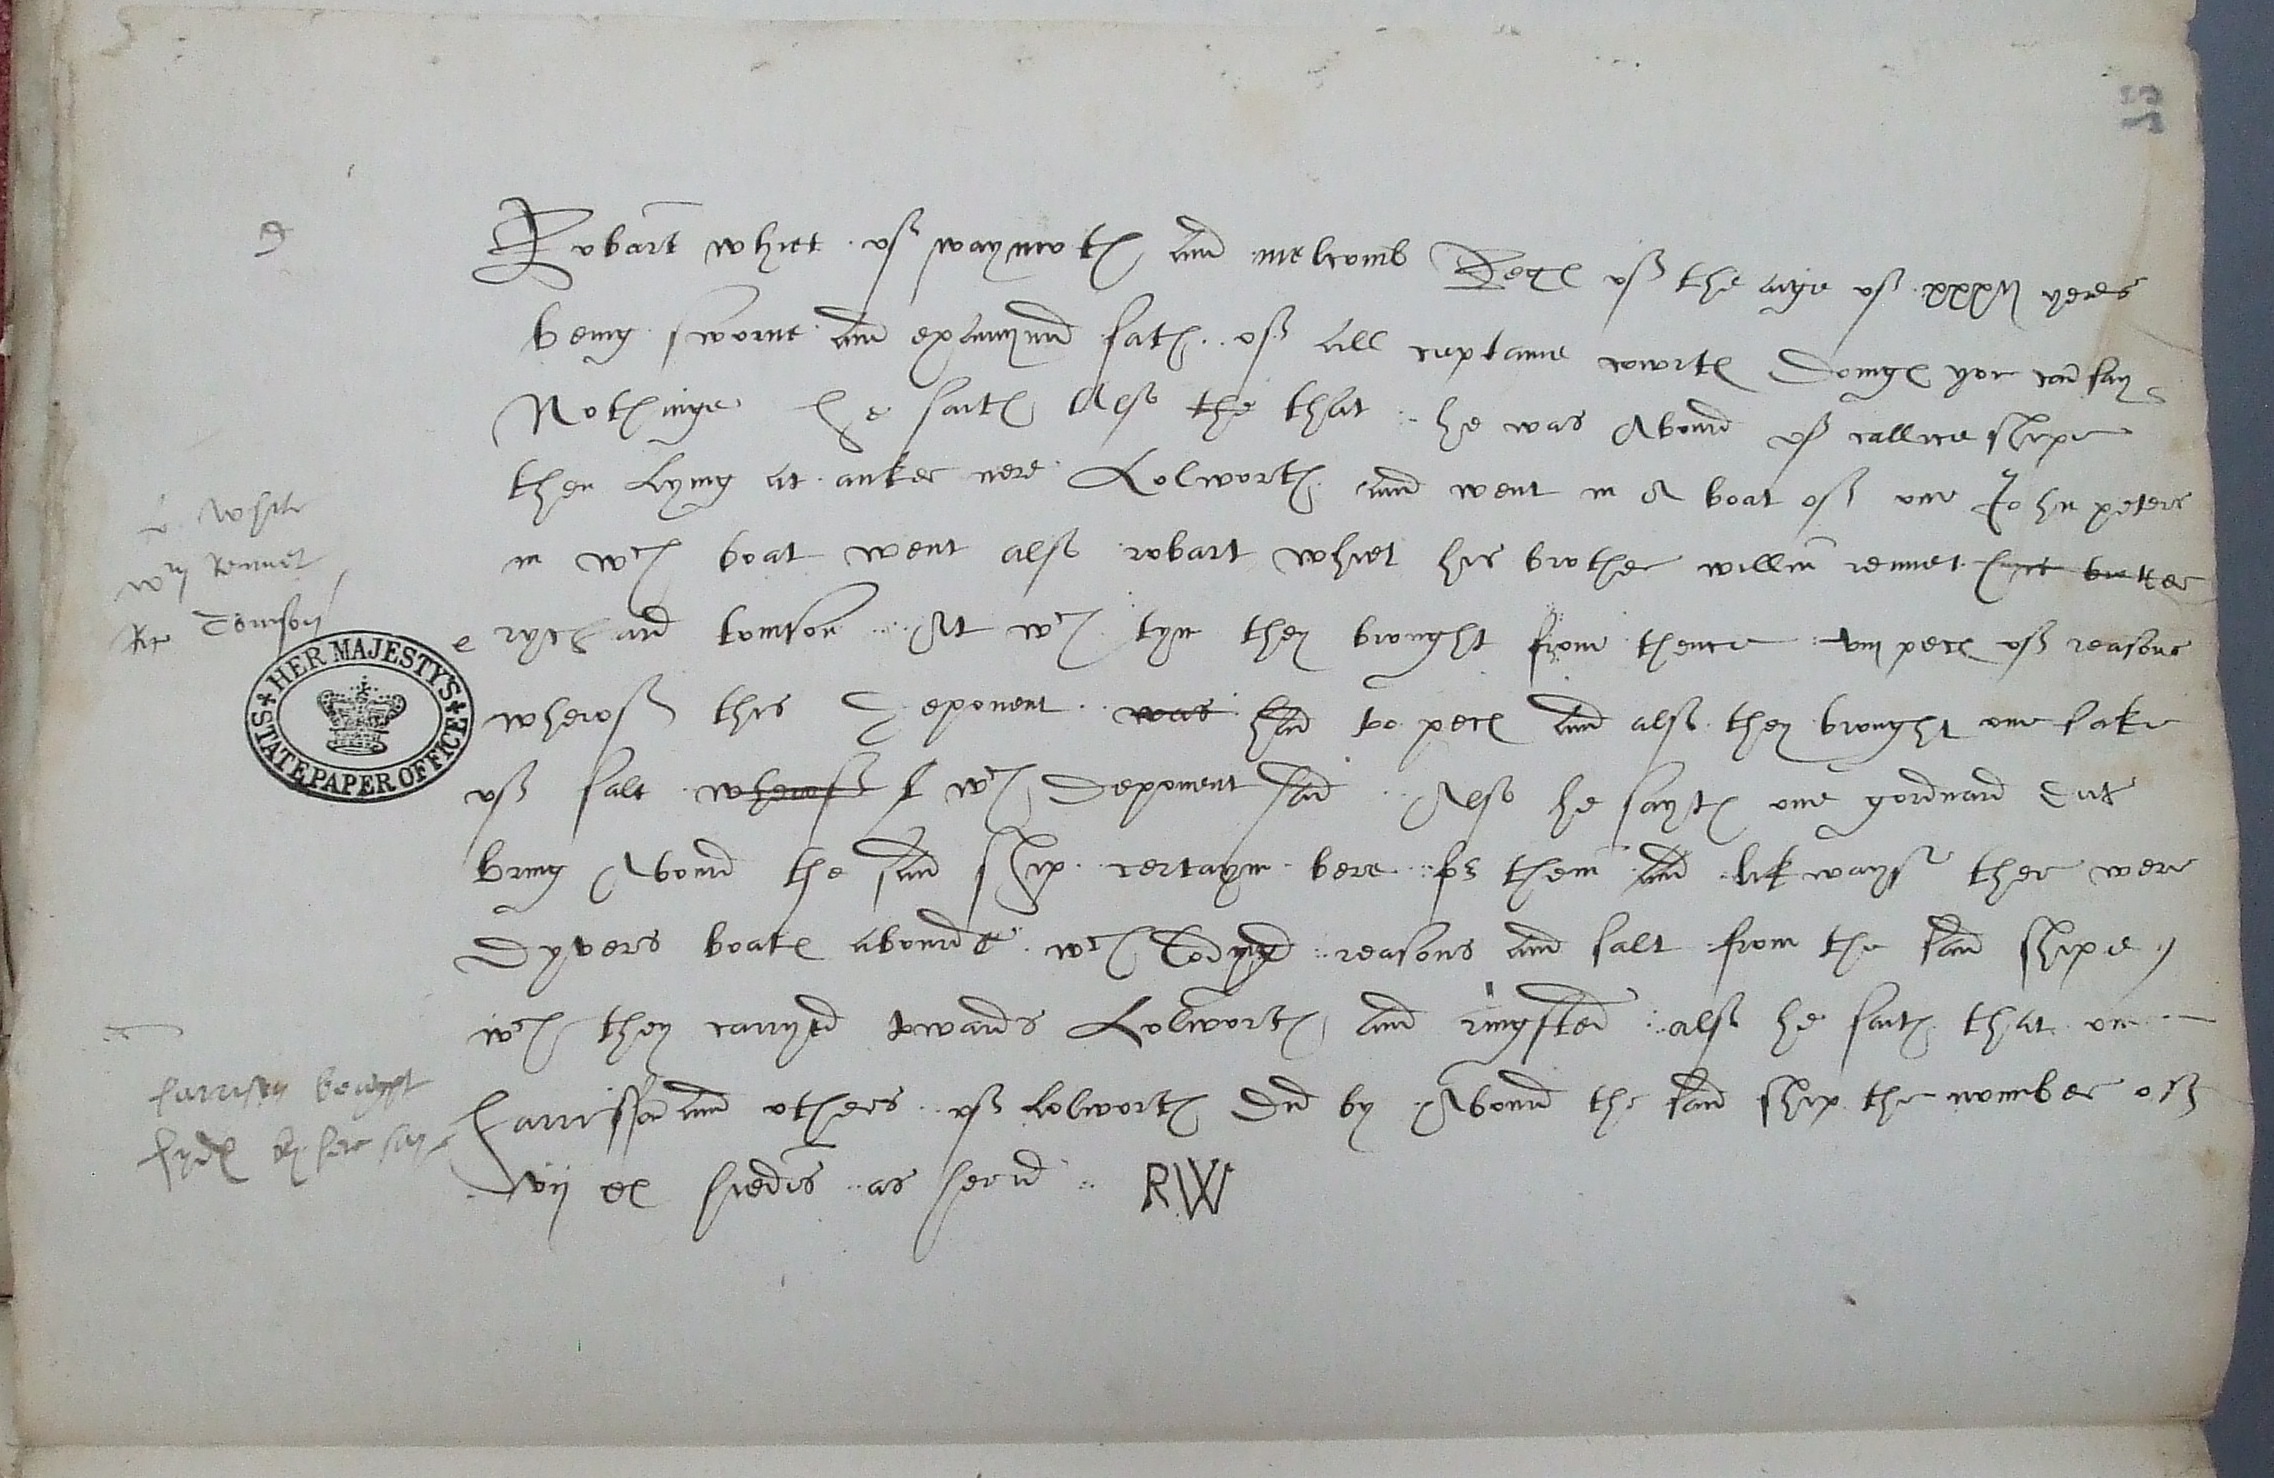 25
Robart whiet of waymoth and melcomb Reg of the aige of xxxvj yeres
being sworne and examynid sath of all captaine courtes doinges yor can say
Nothinge he saith Also the that he was Abourd of callice shipe
then Lying at anker nere Lolworth and went in A boat of one John peters
in wch boat went also robart whiet his brother willim rennet
rychard tomson At wch tym they brought from thence viij peces of reasons
wherof this Deponent was had to peces and also they brought one sake
of salt wherof wch Deponent had Also he sayth one gordnard did
bring Abourd the said ship certaym bere for them and likwayse ther were
Dyvers boates abourde wch Lodyd reasons and salt from the said shipe
wch they carryed towards Lolworth and ringsted also he saith that one
harrisson and others of Lolworth did by Abourd the said ship the nomber of
vij or hiedes as herd RW
White
Wm Rennet
Ry Tomson
HER MAJESTY'S STATE PAPER OFFICE
harrison bought
hydes by here say